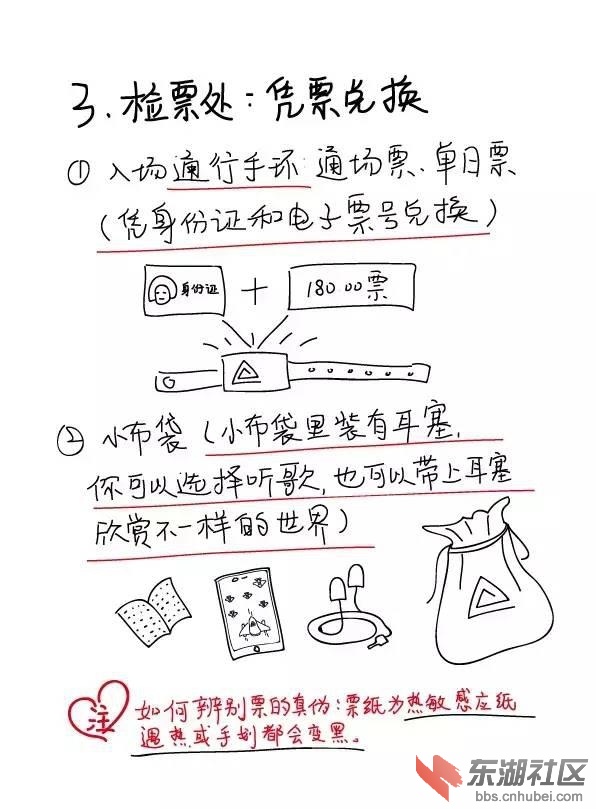 3.检票处:凭票兑换
① 入场通行手环:通场票、单日票
(凭身份证和电子票号兑换)
身份证 + 180.00票
② 小布袋(小布袋里装有耳塞,
你可以选择听歌,也可以带上耳塞
欣赏不一样的世界)
注
如何辨别票的真伪:票纸为热敏感应纸
遇热或手划都会变黑。
东湖社区
bbs.cnhubei.com